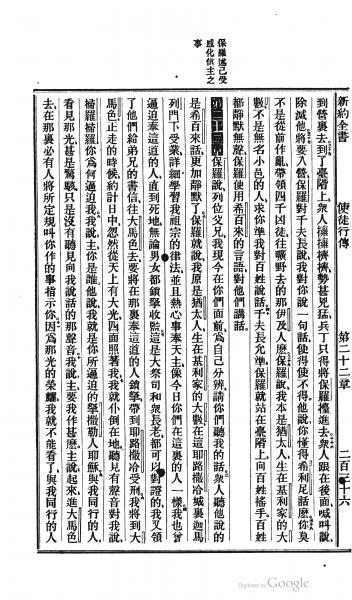 新約全書 使徒行傳 第二十二章 二百 十六
到營裏去到了臺階上衆人擁擁擠擠勢甚兇猛兵丁只得將保羅擡進去衆人跟在後面喊叫說
除滅他將要入營保羅對千夫長說我對你說一句話使得使不得他說你懂得希利尼話麽你莫
不是從前作亂帶領四千凶徒往曠野去的那伊及人麽保羅說我本是猶太人生在基利家的大
數不是無名小邑的人求你准我對百姓說話千夫長允準保羅就站在臺階上向百姓搖手百姓
都靜默無聲保羅使用希百來的言語對他們講話
保羅述己受
感化信主之
事
第二十二章 保羅說列位父兄我現今在你們面前爲自己分辨請你們聽我的話衆人聽他說的
是希百來話更加靜默了保羅就說我原是猶太人生在基利家的大數在這耶路撒冷城裏迦馬
列門下受業詳細學習我祖宗的律法並且熱心事奉天主像今日你們在這裏的人一樣我也曾
逼迫奉這道的人直到死地無論男女都鎖拏收監這是大祭司和衆長老都可以對證的我又領
了他們給弟兄的書信往大馬色去要將在那裏奉這道的人鎖拏帶到耶路撒冷受刑我將到大
馬色正走的時候約計日中忽然從天上有大光四面照著我我就仆倒在地聽見有聲音對我說
掃羅掃羅你爲何逼迫我我說主你是誰他說我就是你所逼迫的拏撒勒人耶穌與我同行的人
看見那光甚是驚駭只是沒有聽見向我說話的那聲音我說主要我作甚麽主說起來進大馬色
去在那裏必有人將所定規叫你作的事指示你因爲那光的榮耀我就不能看了與我同行的人
Digitized by Google